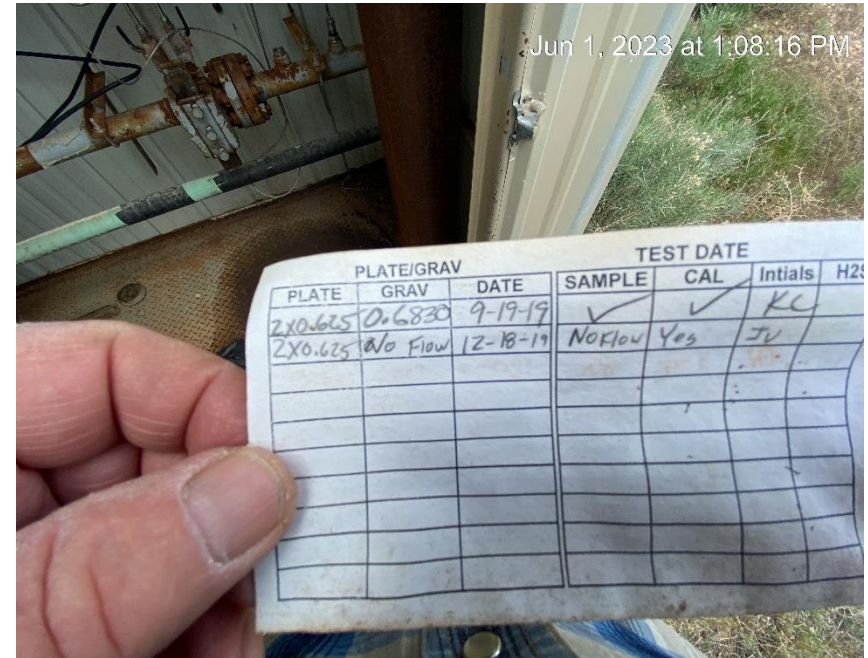 Jun 1, 2023 at 1:08:16 PM
PLATE/GRAV TEST DATE
PLATE GRAV DATE SAMPLE CAL Intials H2S
2X0.625 0.6830 9-19-19 ✓ ✓ KC
2X0.625 No Flow 12-18-19 NoFlow Yes JV